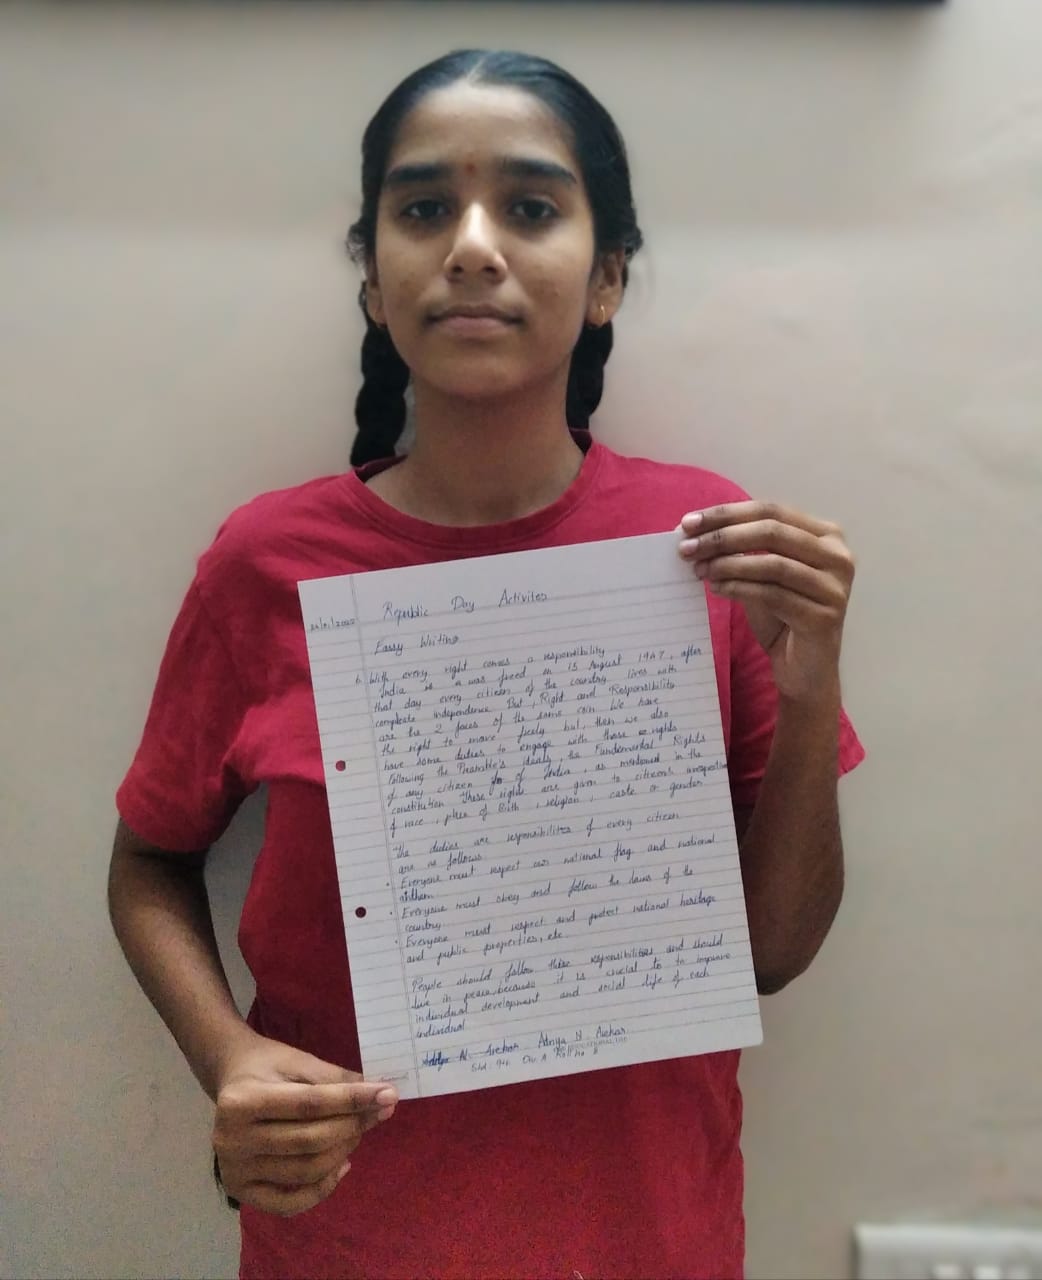 24/01/2022
Republic Day Activites
Eassy Writing
6. With every right comes a responsibility
India is a was freed on 15 August 1947, after
that day every citizen of the country lives with
compleate independence. But, Right and Responsibility
are the 2 faces of the same coin. We have
the right to move freely but, then we also
have some duties to engage with those rights
following the Preamble's ideals, the Fundemental Rights
of any citizen of India, as mentioned in the
constitution. These rights are given to citizens irrespective
of race, place of Birth, religion, caste or gender
The duties are responsibilites of every citizen
are as follows
• Everyone must respect our national flag and national
anthem.
• Everyone must obey and follow the laws of the
country.
• Everyone must respect and protect national heritage
and public properties, etc.
People should follow these responsibilities and should
live in peace, because it is crucial to to improve
individual development and social life of each
individual
N. Archar Adnya N. Archar
Std: 9th Div. A Roll no 8